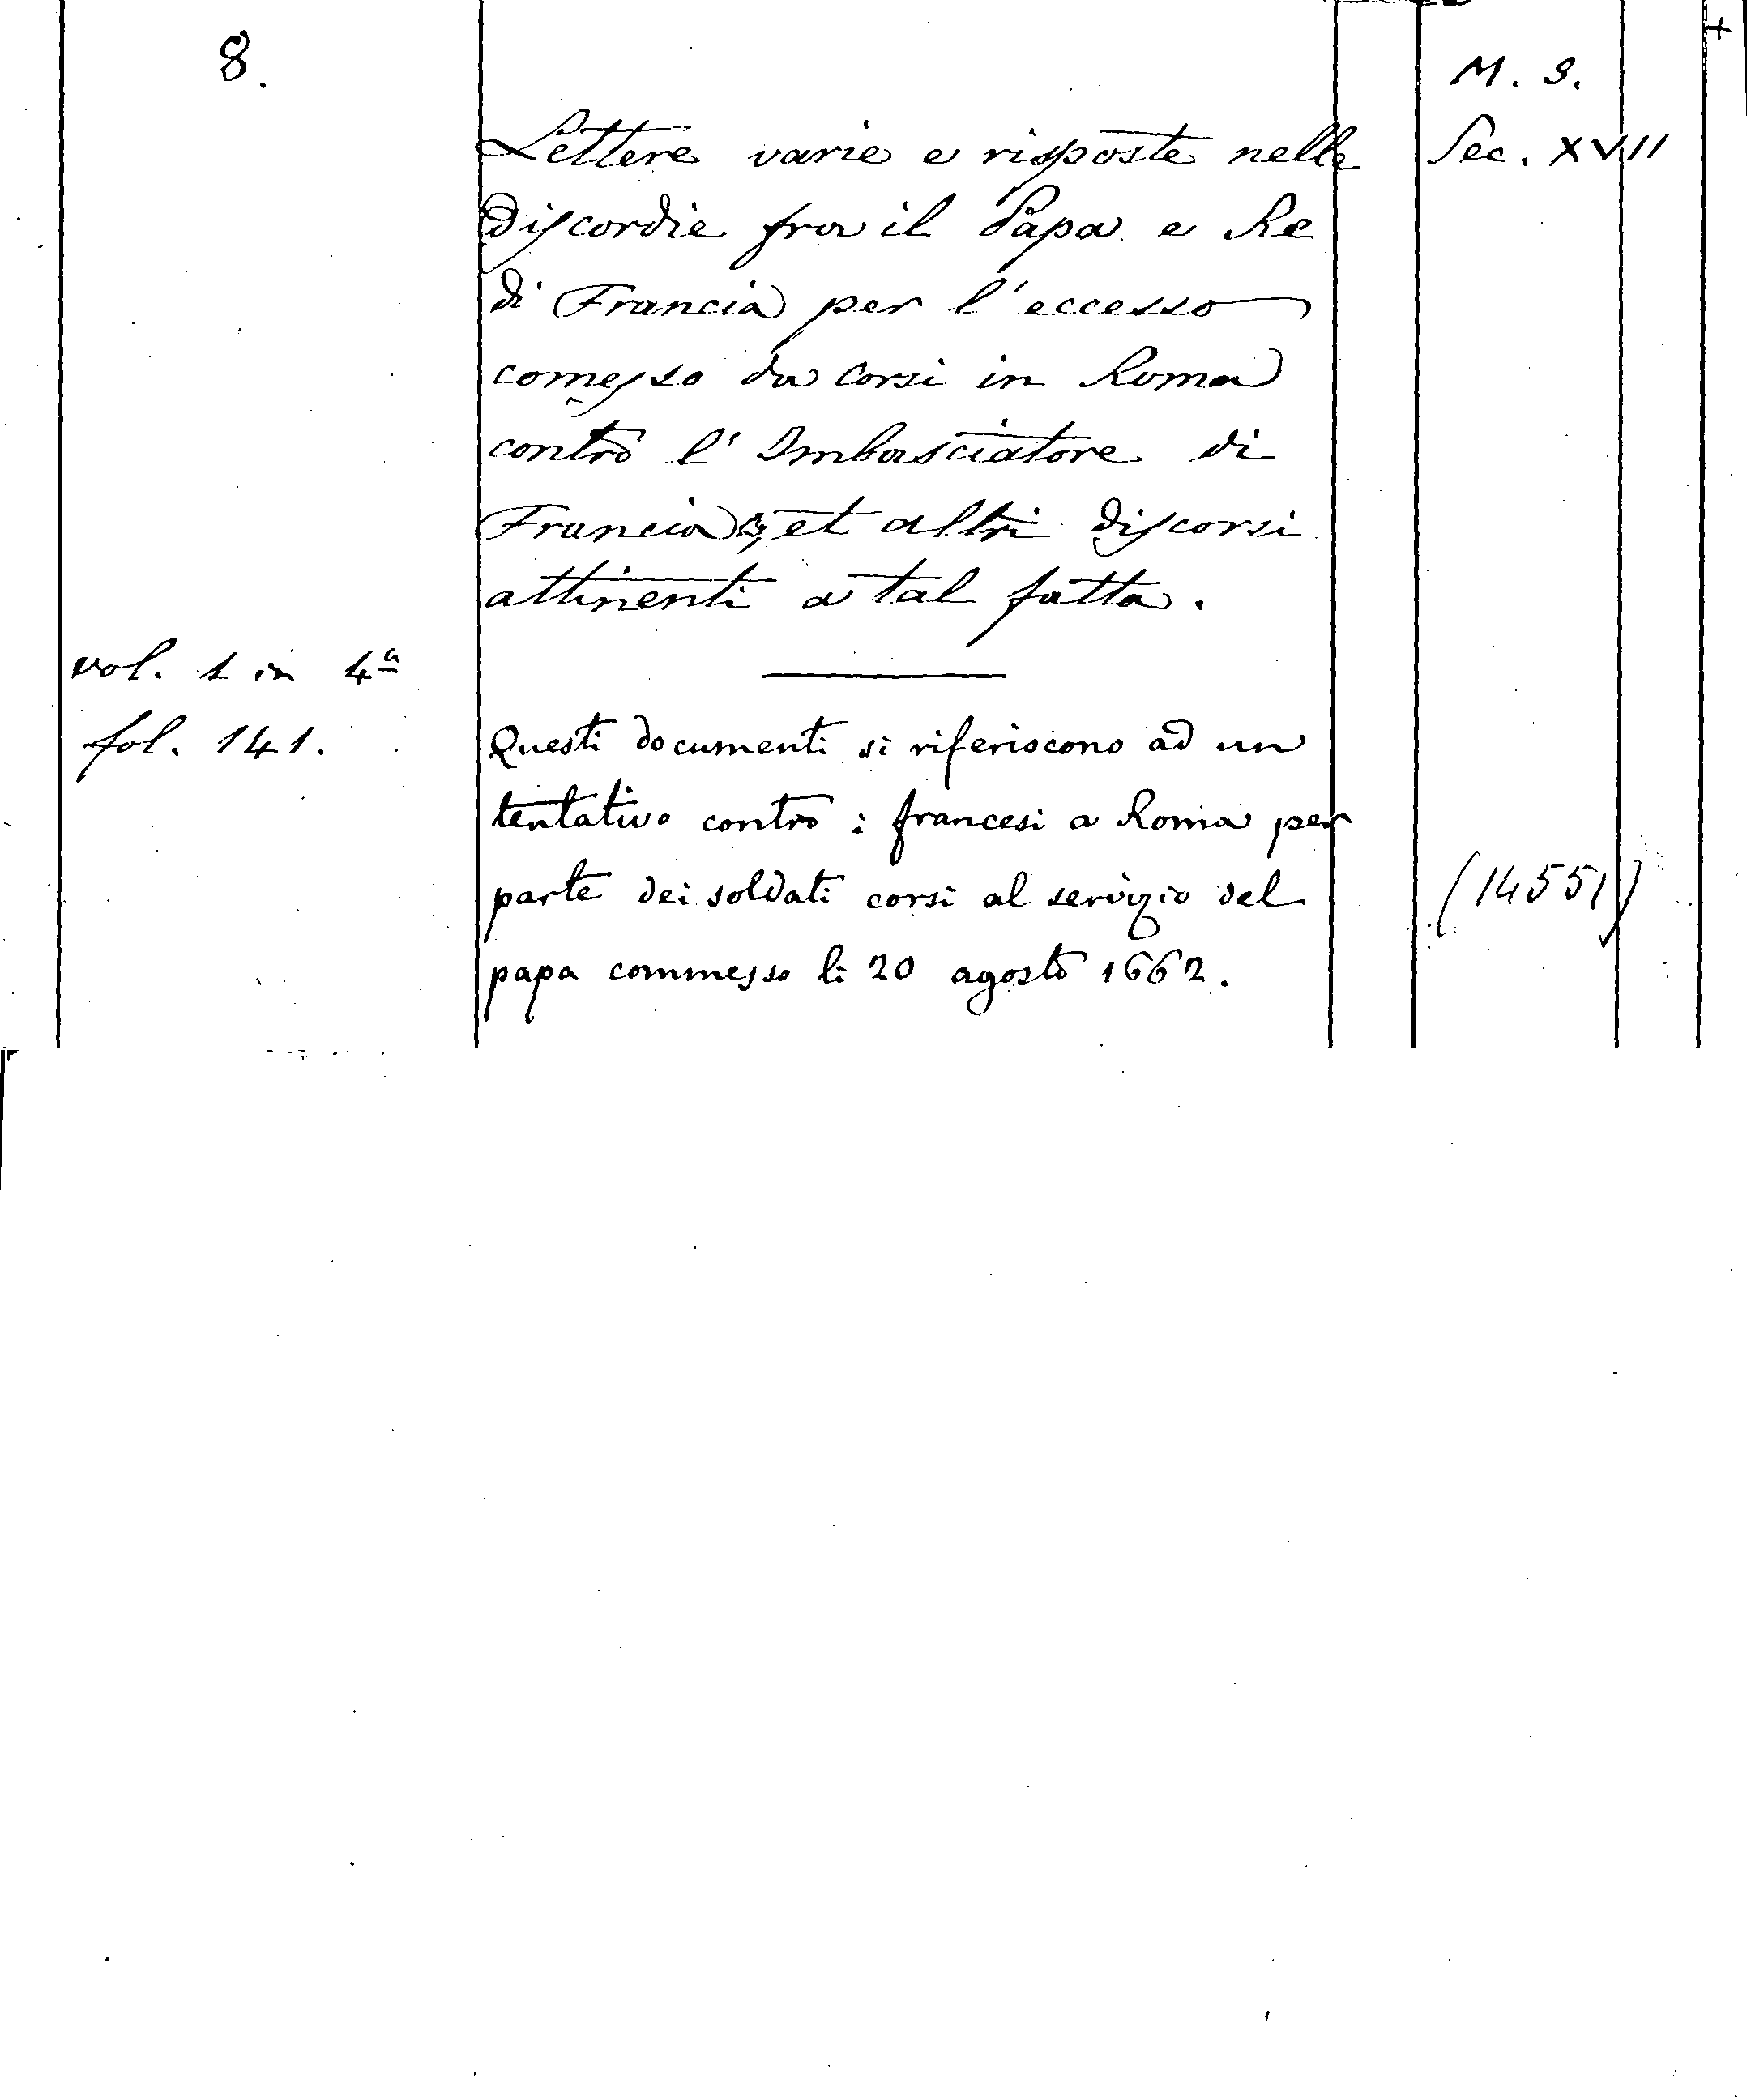 8.
M. S.
Lettere varie e risposte nelle
Sec. XVII
Discordie fra il Papa e Re
di Francia per l'eccesso
comesso da Corsi in Roma
contro l'Imbasciatore di
Francia, et altri discorsi
attinenti a tal fatta.
vol. 1 in 4a
fol. 141.
Questi documenti si riferiscono ad un
tentativo contro i francesi a Roma per
parte dei soldati corsi al servizio del
(14551)
papa commesso li 20 agosto 1662.